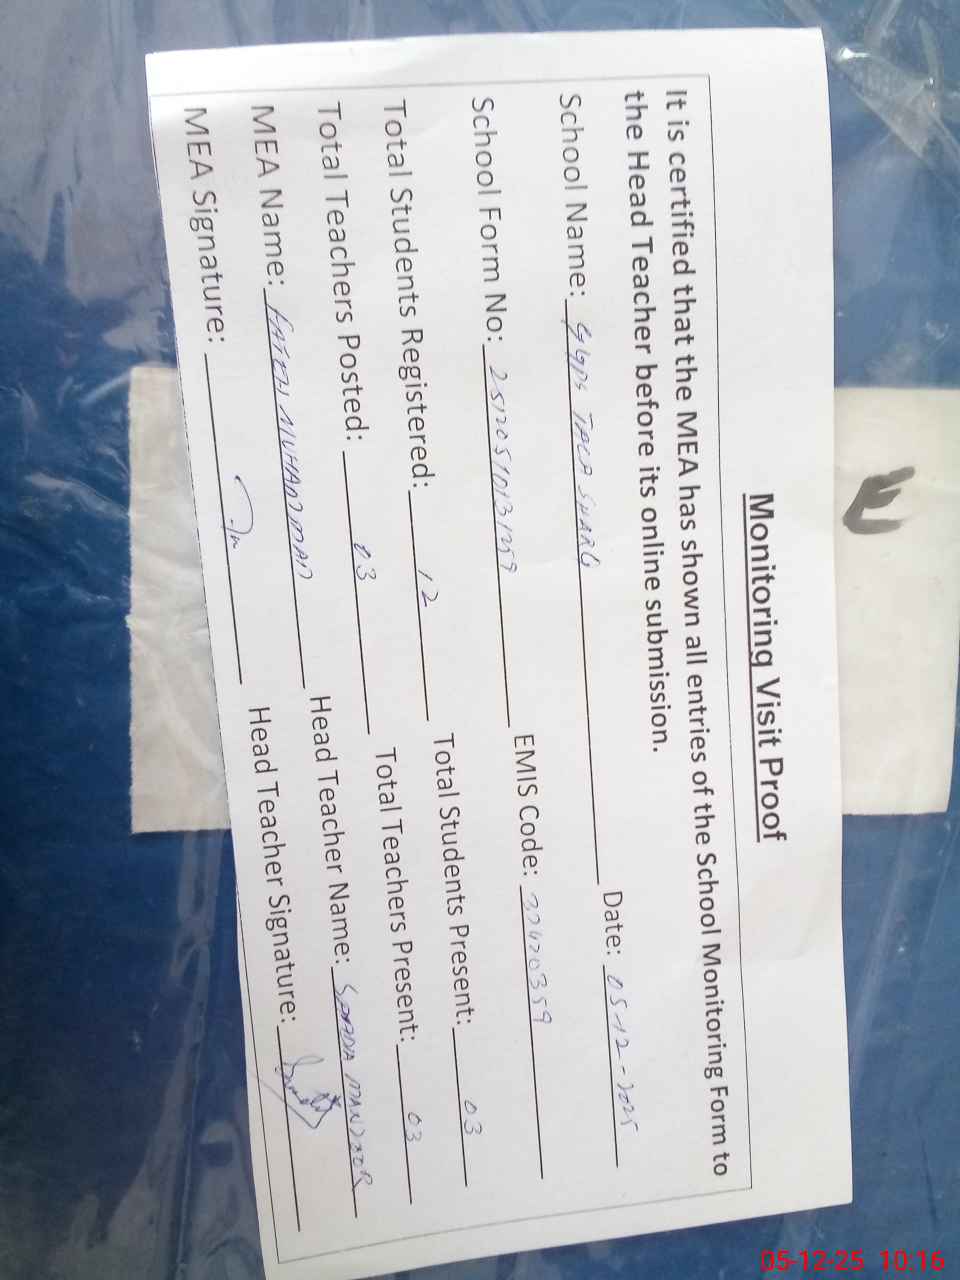 Monitoring Visit Proof
It is certified that the MEA has shown all entries of the School Monitoring Form to
the Head Teacher before its online submission.
School Name: GGPS TALA SHARG Date: 05-12-2025
School Form No: EMIS Code: 37420359
Total Students Registered: 12 Total Students Present: 03
Total Teachers Posted: 03 Total Teachers Present: 03
MEA Name: FATEH MUHAMMAD Head Teacher Name: MANZOOR
MEA Signature: Head Teacher Signature:
05-12-25 10:16